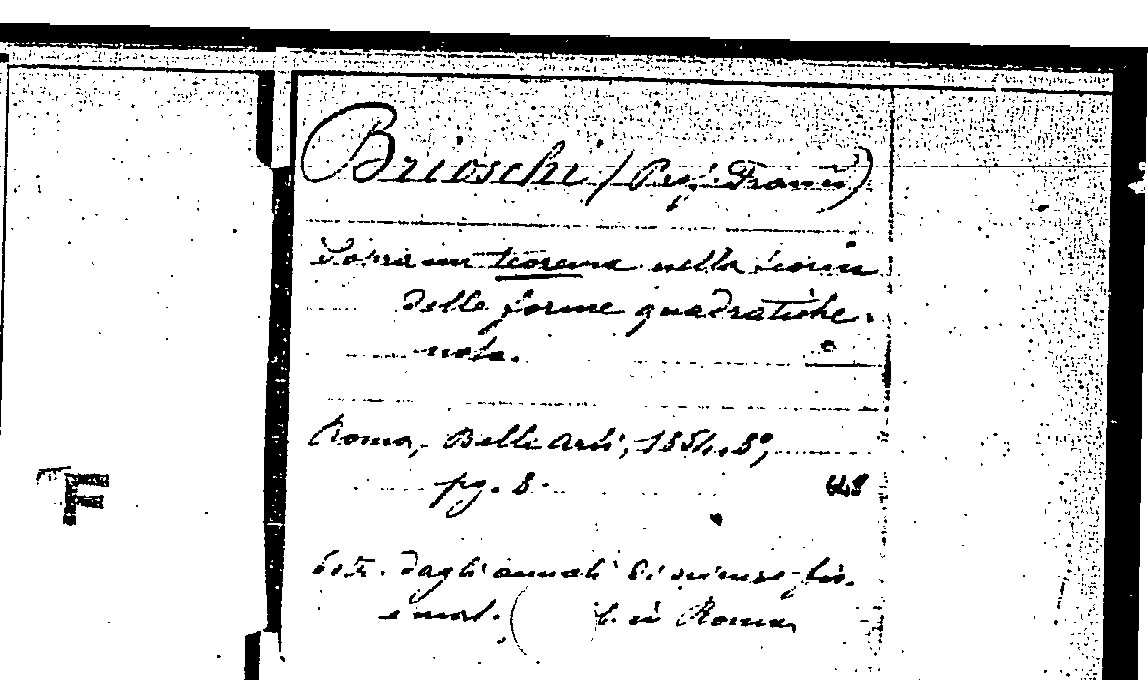 Brioschi (Prof. Franc.)
Sopra un teorema nella teoria
delle forme quadratiche.
nota.
Roma, Belle Arti, 1854, 8°,
pg. 8.
Estr. dagli annali di scienze fis.
e mat. in Roma